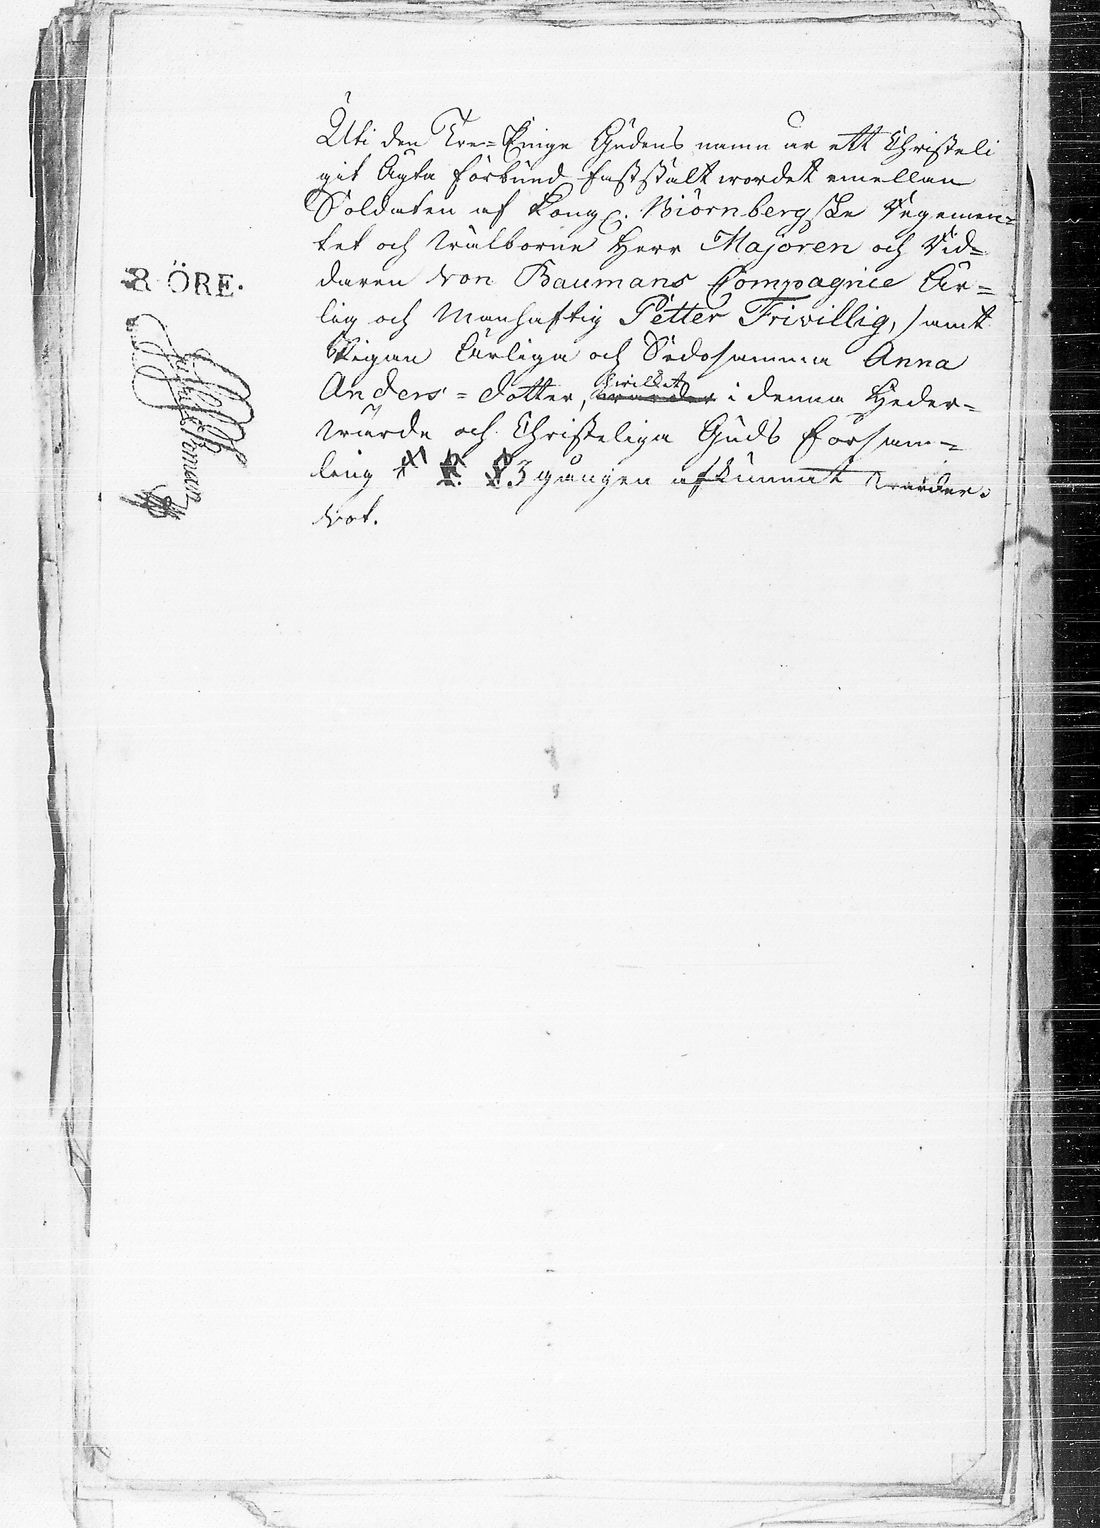 Uti den Tre-Eniga Gudens namn är ett Christeli
git Ägta förbund faststält wordet emellan
Soldaten af Kongl. Biörnbergske Regemen=
tet och Wälborne Herr Majoren och Rid=
daren von Baumans Compagnie Är=
lig och Manhaftig Petter Friwillig, samt
Pigan Ärliga och Sedosamma Anna
Anders=dotter, hwilket i denna Heder=
wärde och Christeliga Guds försam=
ling 3 gången afkunnat warder.
8 ÖRE.